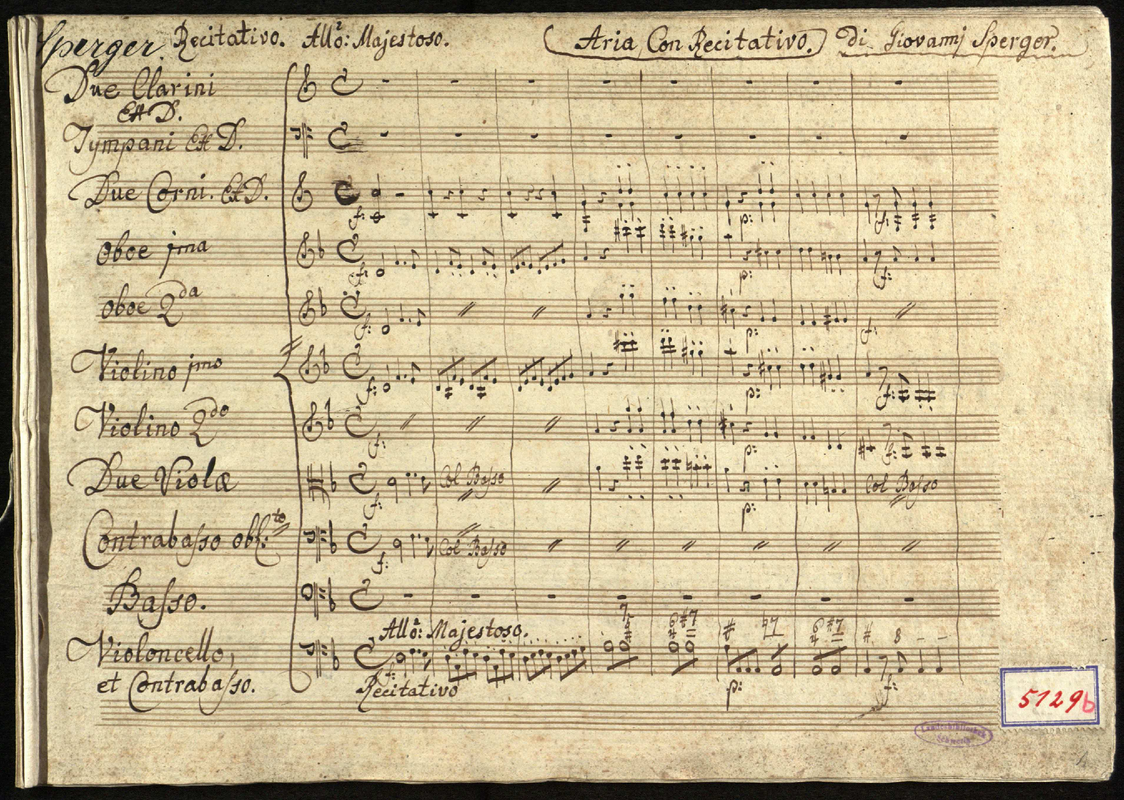 Sperger. Recitativo. Allo: Majestoso. Aria Con Recitativo. Di Giovannj Sperger.
Due Clarini
Ex D.
Tympani Ex D.
Due Corni. Ex D.
f:
p:
f:
Oboe jma
f:
p:
f:
Oboe 2da
f:
p:
f:
Violino jmo
f:
p:
f:
Violino 2do
f:
p:
f:
Due Violæ
f:
Col Basso
p:
Col Basso
Contrabasso obl:to
f:
Col Basso
Basso.
Allo: Majestoso.
Violoncello,
et Contrabasso.
f:
Recitativo
p:
f:
5129b
Landesbibliothek
Schwerin